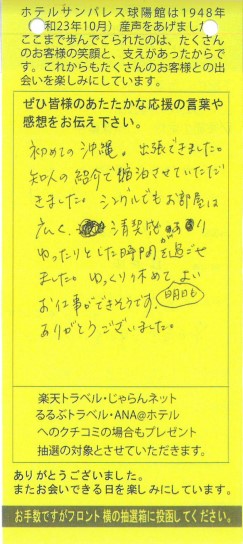 ホテルサンパレス球陽館は1948年
和23年10月）産声をあげました
ここまで歩んでこられたのは、たくさん
のお客様の笑顔と、支えがあったからで
す。これからもたくさんのお客様との出
会いを楽しみにしています。
ぜひ皆様のあたたかな応援の言葉や
感想をお伝え下さい。
初めての沖縄。出張できました。
知人の紹介で宿泊させていただ
きました。シングルでもお部屋は
広く、清潔感あり
ゆったりとした時間を過ごせ
ました。ゆっくり休めてよい
お仕事ができそうです。明日も
ありがとうございました。
楽天トラベル・じゃらんネット
るるぶトラベル・ANA@ホテル
へのクチコミの場合もプレゼント
抽選の対象とさせていただきます。
ありがとうございました。
またお会いできる日を楽しみにしています。
お手数ですがフロント横の抽選箱に投函してください。